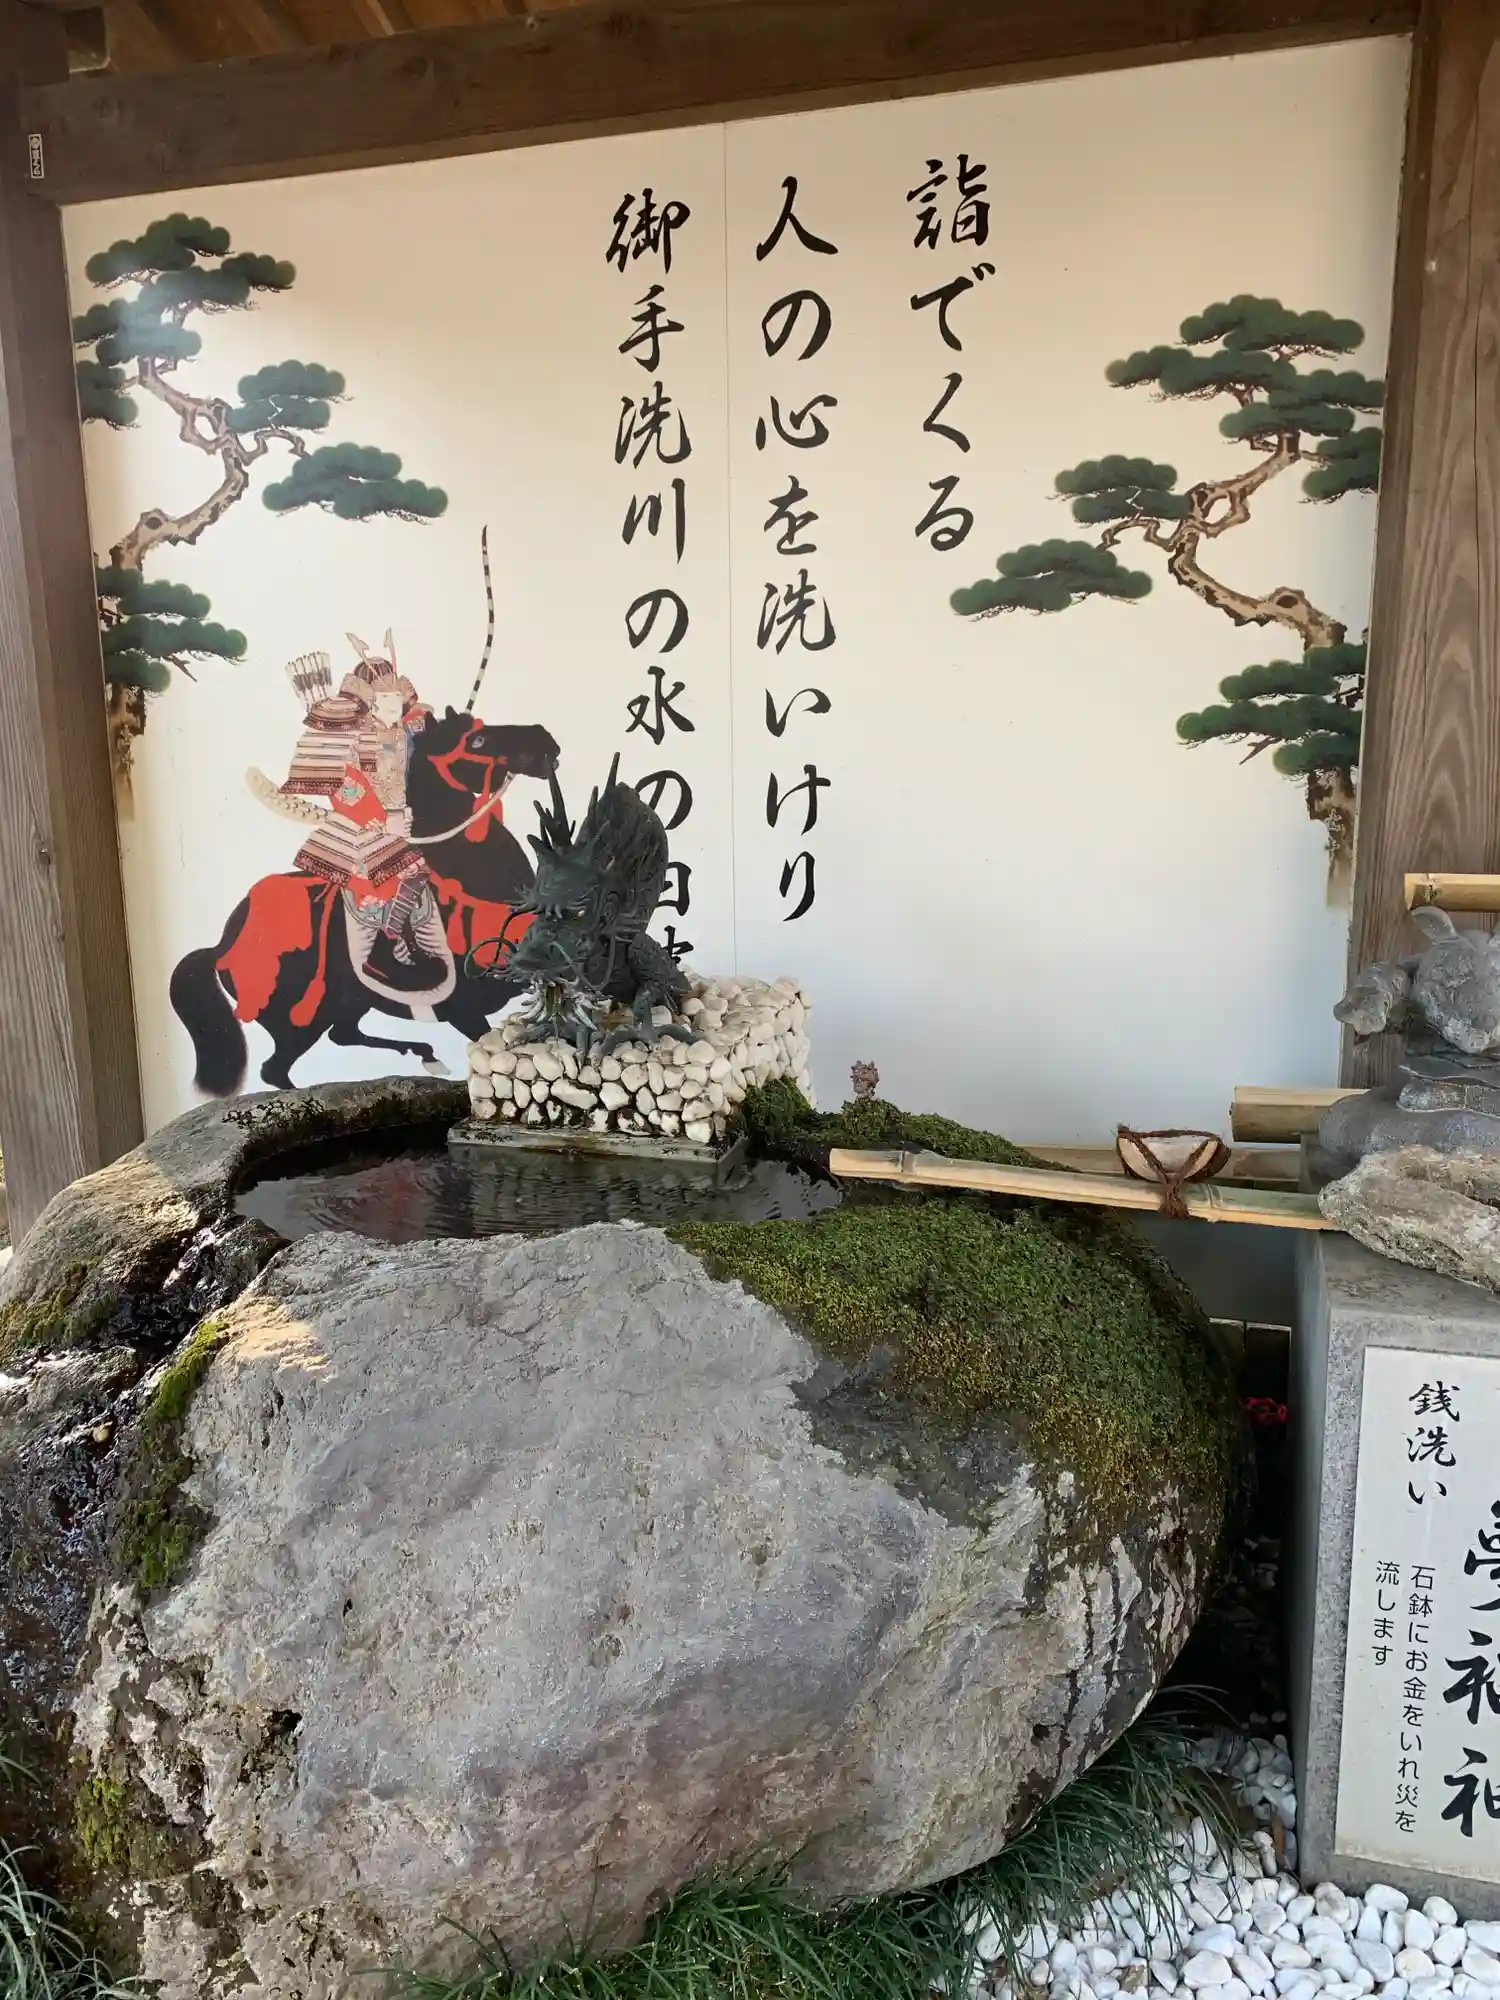 詣でくる
人の心を洗いけり
御手洗川の水の白波
銭洗い
夢福神
石鉢にお金をいれ災を
流します